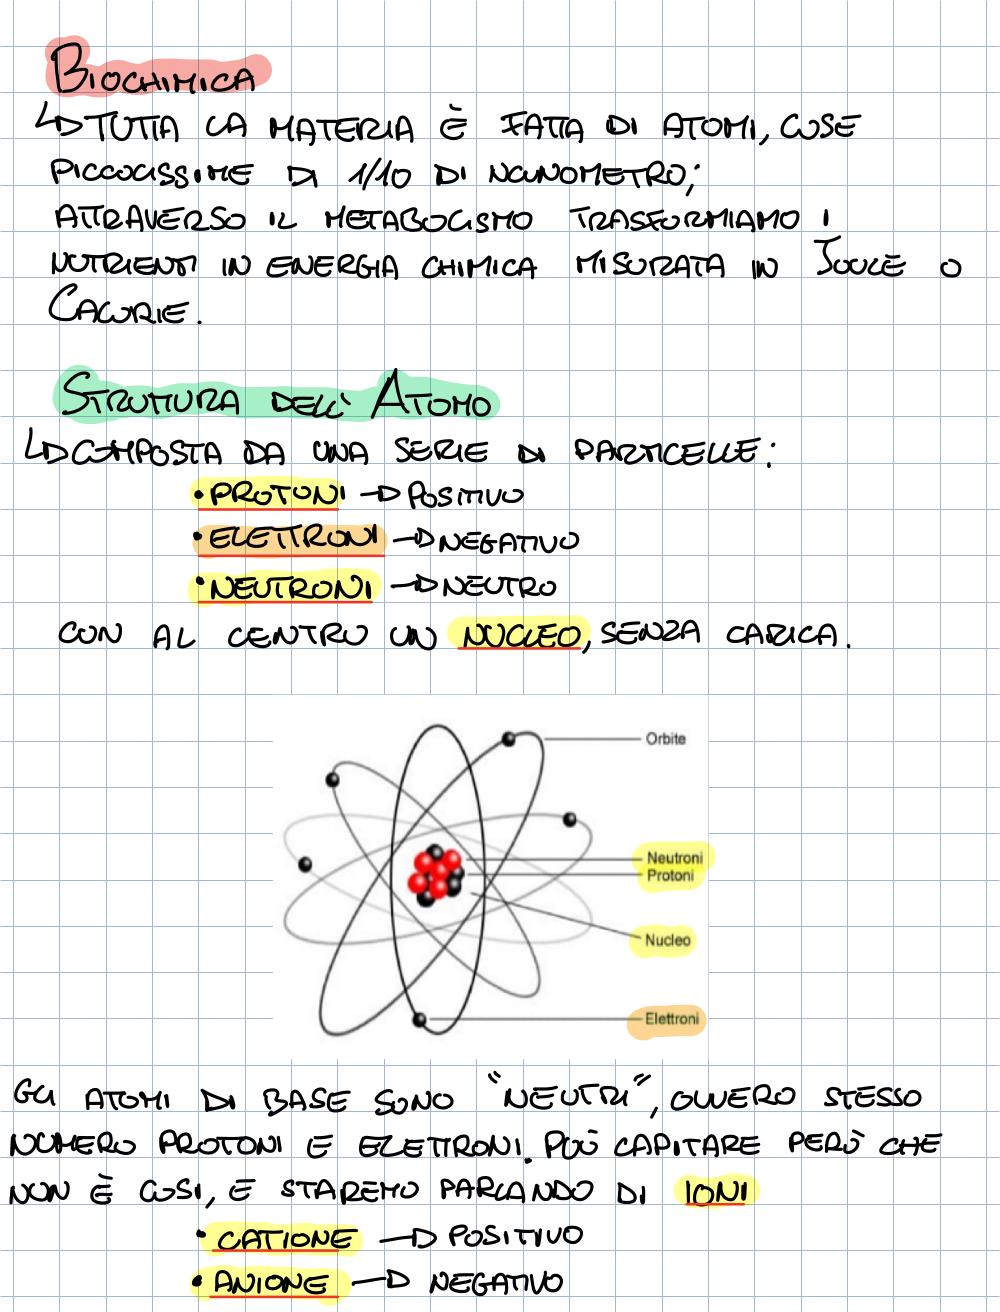 BIOCHIMICA
↳ TUTTA LA MATERIA È FATTA DI ATOMI, COSE
PICCOLISSIME DI 1/10 DI NANOMETRO;
ATTRAVERSO IL METABOLISMO TRASFORMIAMO I
NUTRIENTI IN ENERGIA CHIMICA MISURATA IN JOULE O
CALORIE.
STRUTTURA DELL'ATOMO
↳ COMPOSTA DA UNA SERIE DI PARTICELLE:
• PROTONI → POSITIVO
• ELETTRONI → NEGATIVO
• NEUTRONI → NEUTRO
CON AL CENTRO UN NUCLEO, SENZA CARICA.
Orbite
Neutroni
Protoni
Nucleo
Elettroni
GLI ATOMI DI BASE SONO "NEUTRI", OVVERO STESSO
NUMERO PROTONI E ELETTRONI. PUÒ CAPITARE PERÒ CHE
NON È COSI, E STAREMO PARLANDO DI IONI
• CATIONE → POSITIVO
• ANIONE → NEGATIVO